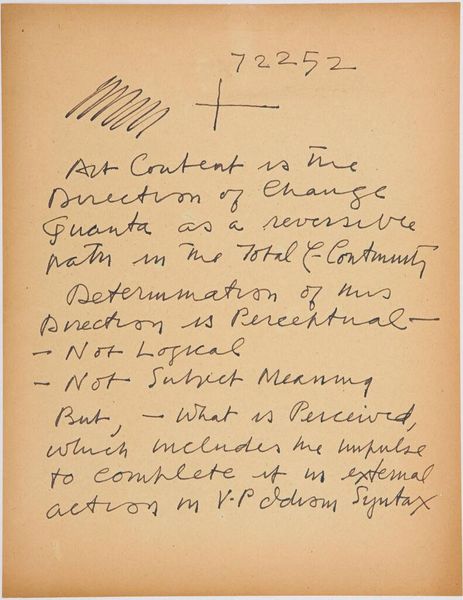 72252
Art Content is the
Direction of Change
Quanta as a reversible
path in the Total C-Continuity
Determination of this
Direction is Perceptual —
- Not Logical
- Not Subject Meaning
But, - What is Perceived,
which includes the impulse
to complete it in external
action in V-P Idiom Syntax